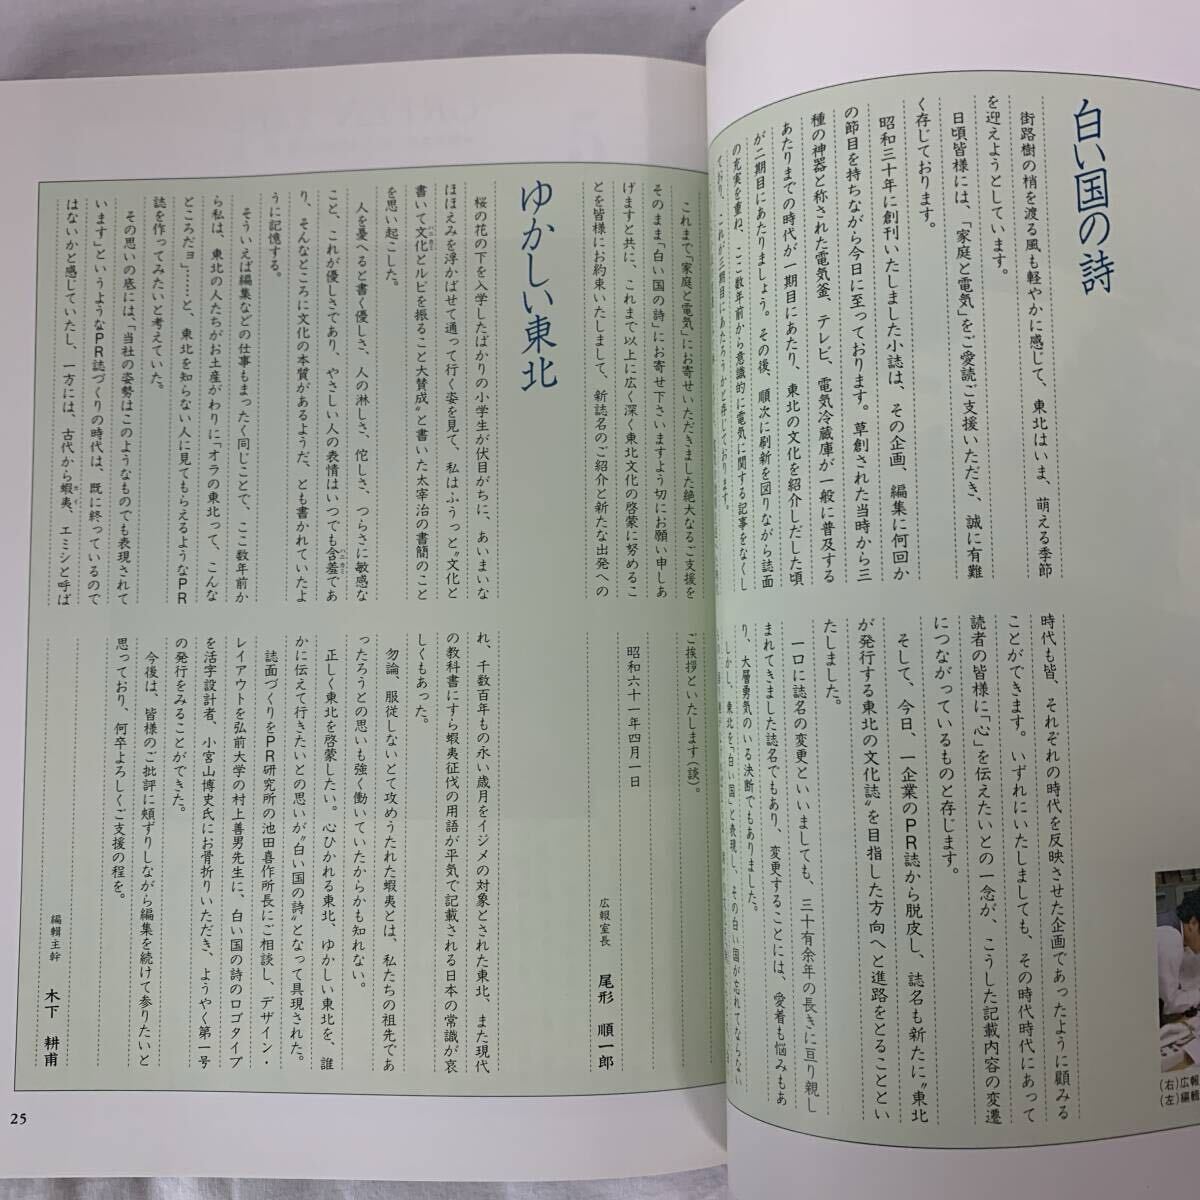 白い国の詩
街路樹の梢を渡る風も軽やかに感じて、東北はいま、萌える季節
を迎えようとしています。
日頃皆様には、「家庭と電気」をご愛読ご支援いただき、誠に有難
く存じております。
昭和三十年に創刊いたしました小誌は、その企画、編集に何回か
の節目を持ちながら今日に至っております。草創された当時から三
種の神器と称された電気釜、テレビ、電気冷蔵庫が一般に普及する
あたりまでの時代が一期目にあたり、東北の文化を紹介しだした頃
が二期目にあたりましょう。その後、順次に刷新を図りながら誌面
の充実を重ね、ここ数年前から意識的に電気に関する記事をなくし
ており、これが三期目にあたろうかと存じております。
時代も皆、それぞれの時代を反映させた企画であったように顧みる
ことができます。いずれにいたしましても、その時代時代にあって
読者の皆様に「心」を伝えたいとの一念が、こうした記載内容の変遷
につながっているものと存じます。
そして、今日、一企業のPR誌から脱皮し、誌名も新たに〝東北
が発行する東北の文化誌〟を目指した方向へと進路をとることとい
たしました。
一口に誌名の変更といいましても、三十有余年の長きに亘り親し
まれてきました誌名でもあり、変更することには、愛着も悩みもあ
り、大層勇気のいる決断でもありました。
しかし、東北を「白い国」と表現し、その白い国が忘れてならない
(右)広報
(左)編輯
これまで「家庭と電気」にお寄せいただきました絶大なるご支援を
そのまま「白い国の詩」にお寄せ下さいますよう切にお願い申しあ
げますと共に、これまで以上に広く深く東北文化の啓蒙に努めるこ
とを皆様にお約束いたしまして、新誌名のご紹介と新たな出発への
ご挨拶といたします(談)。
昭和六十一年四月一日
広報室長 尾形 順一郎
ゆかしい東北
桜の花の下を入学したばかりの小学生が伏目がちに、あいまいな
ほほえみを浮かばせて通って行く姿を見て、私はふうっと〝文化と
書いて文化とルビを振ること大賛成〟と書いた太宰治の書簡のこと
を思い起こした。
人を憂へると書く優しさ、人の淋しさ、侘しさ、つらさに敏感な
こと、これが優しさであり、やさしい人の表情はいつでも含羞であ
り、そんなところに文化の本質があるようだ、とも書かれていたよ
うに記憶する。
そういえば編集などの仕事もまったく同じことで、ここ数年前か
ら私は、東北の人たちがお土産がわりに「オラの東北って、こんな
ところだョ」……と、東北を知らない人に見てもらえるようなPR
誌を作ってみたいと考えていた。
その思いの底には、「当社の姿勢はこのようなものでも表現されて
います」というようなPR誌づくりの時代は、既に終っているので
はないかと感じていたし、一方には、古代から蝦夷、エミシと呼ば
れ、千数百年もの永い歳月をイジメの対象とされた東北、また現代
の教科書にすら蝦夷征伐の用語が平気で記載される日本の常識が哀
しくもあった。
勿論、服従しないとて攻めうたれた蝦夷とは、私たちの祖先であ
ったろうとの思いも強く働いていたからかも知れない。
正しく東北を啓蒙したい。心ひかれる東北、ゆかしい東北を、誰
かに伝えて行きたいとの思いが〝白い国の詩〟となって具現された。
誌面づくりをPR研究所の池田喜作所長にご相談し、デザイン・
レイアウトを弘前大学の村上善男先生に、白い国の詩のロゴタイプ
を活字設計者、小宮山博史氏にお骨折りいただき、ようやく第一号
の発行をみることができた。
今後は、皆様のご批評に頬ずりしながら編集を続けて参りたいと
思っており、何卒よろしくご支援の程を。
編輯主幹 木下 耕甫
25